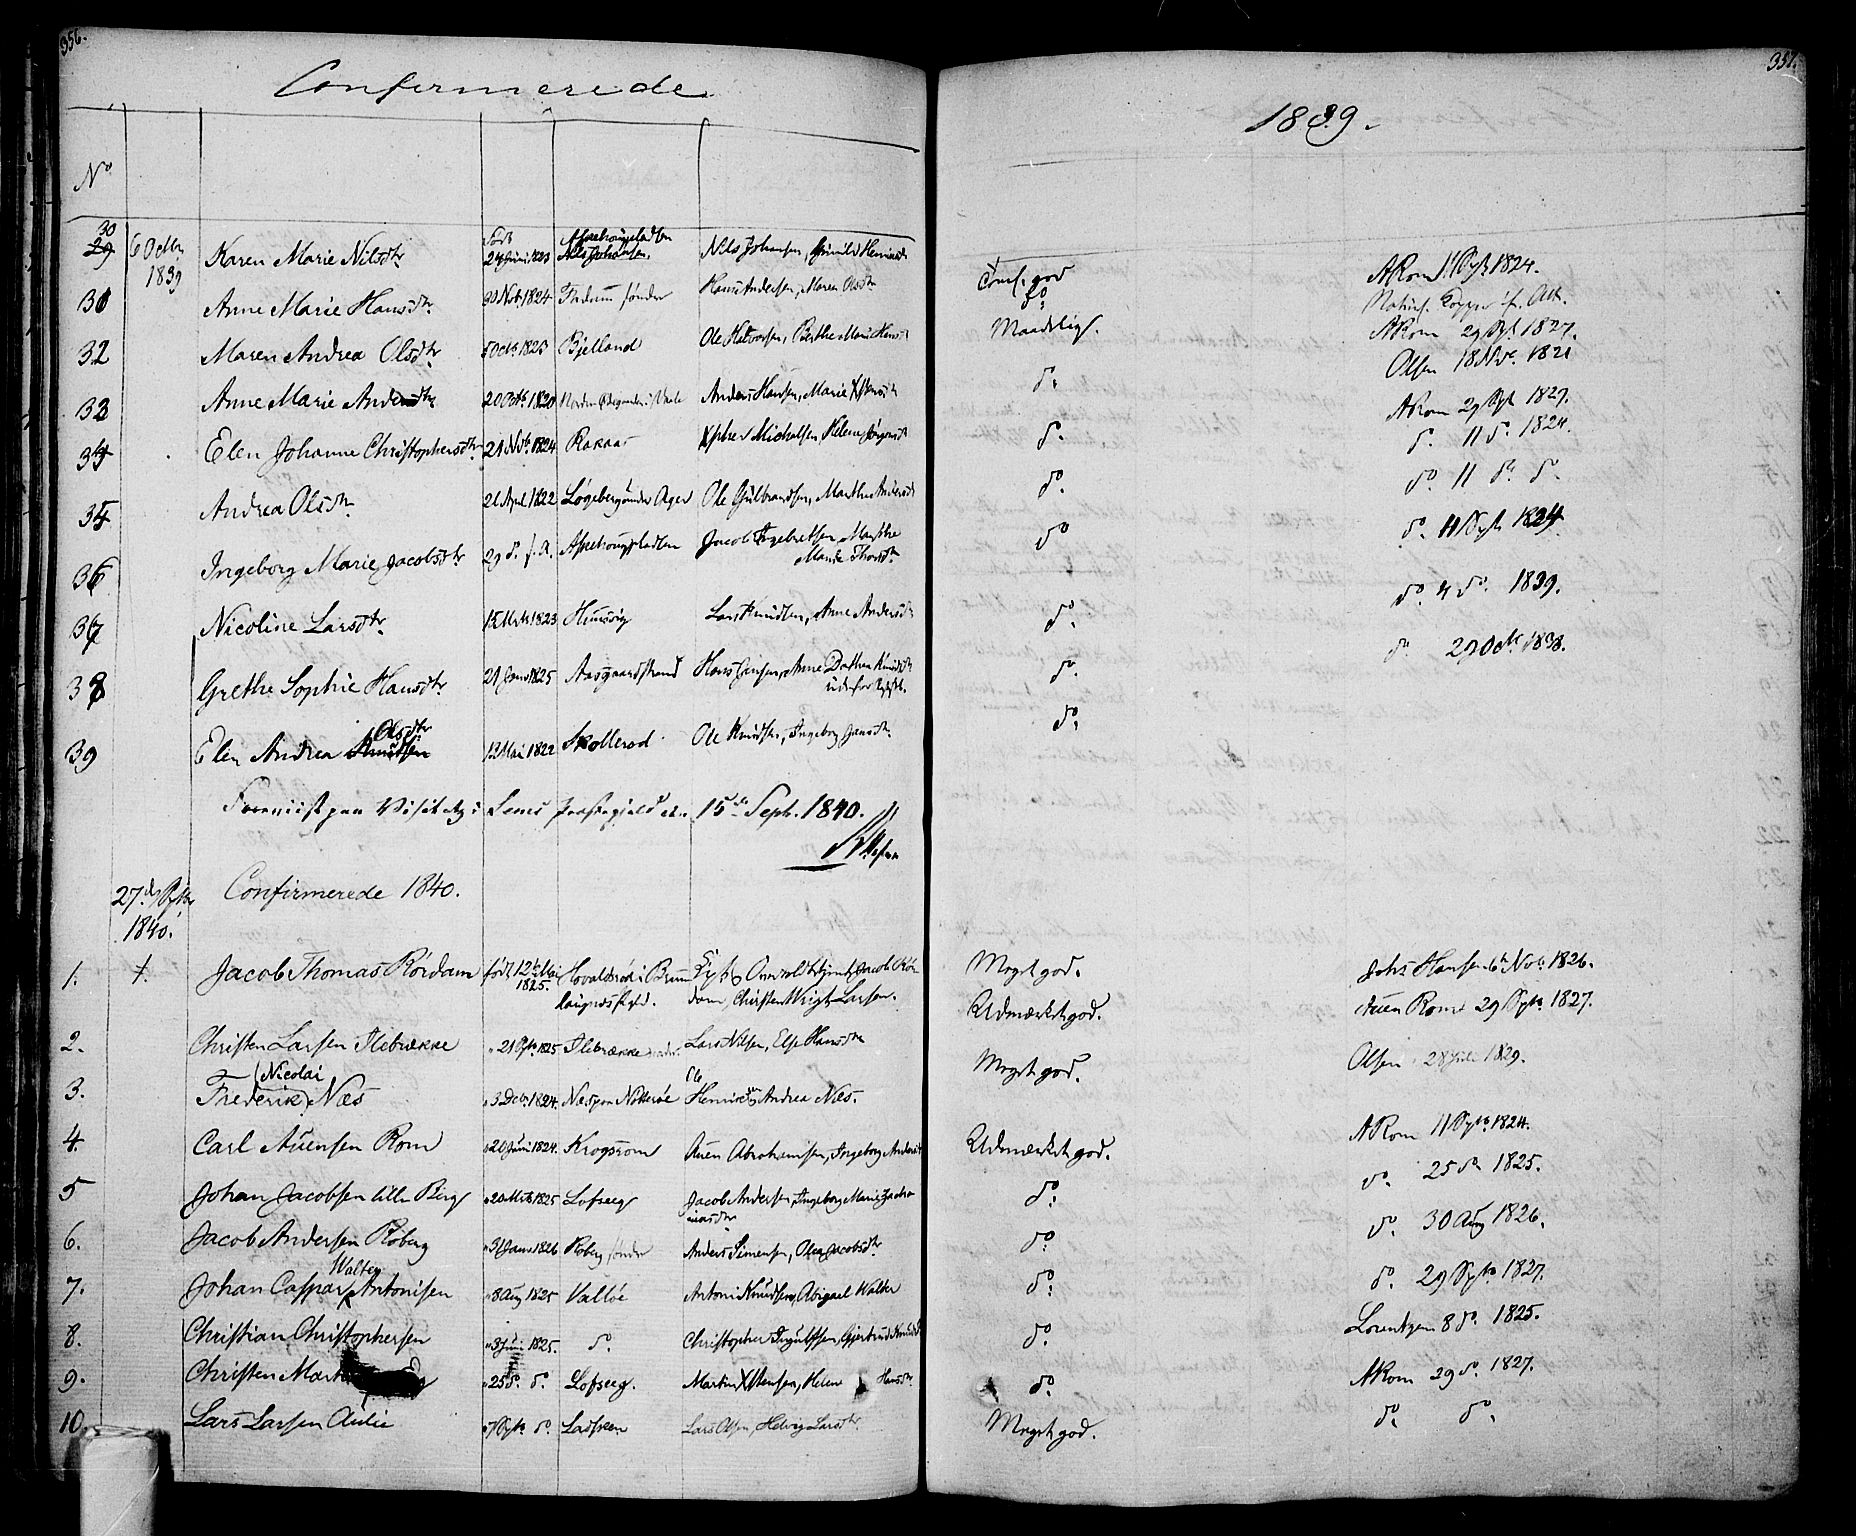 356.
Confirmerede
No
30
29 6 Octbr 1839 Karen Marie Nilsdtr Født 24 Juni 1823 Aschougpladsen Nils Johansen, Gunild Henriksd
31 Anne Marie Hansdtr 30 Nob 1824 søndre Hans Andersen, Maren Olsdtr
32 Maren Andrea Olsdtr 5 Octb 1823 Bjelland Ole Halvorsen, Berthe Marie Hansd
33 Anne Marie Andersdtr 20 Octb 1820 Anders Hansen, Marie
34 Elen Johanne Christophersdtr 21 Nvb. 1824 Rakaas Xpher Michelsen Helene Jørgensd
35 Andrea Olsdtr 26 April 1822 Ole Gulbrandsen, Marthe Andersd
36 Ingeborg Marie Jacobsdtr 29 do. f. A. Aschougpladsen Jacob Ingebretsen, Marthe
Thorsdtr
37 Nicoline Larsdtr 1823 Husvig Lars Knudsen, Anne Andersd
38 Grethe Sophie Hansdtr 21 Janr 1825 Aasgaardstrand Hans Jensen, Anne Dorthea Knudsdtr
39 Elen Andrea Knudsen Olsdtr 12 Mai 1822 Skollerod Ole Knudsen, Ingeborg Jansdtr
Foreviist paa Visitats i Sems Præstegield d. 15de Septr. 1840.
27de Septbr 1840. Confirmerede 1840.
1. †. Jacob Thomas Rördam født 12te Mai 1825. i Brunlaugnæs Jacob Rördam, Christen Larsen.
2. Christen Larsen Ilebrække " 21 Sptb 1825 Ilebrække Lars Nilsen, Else Hansdtr
3. Frederik (Nicolai) Næs " 3 Decb 1824. Næs paa Nøtterøe Henrik Andrea Næs.
4. Carl Auensen Rom " 20 Juni 1824. Krogsrom Auen Abrahamsen, Ingeborg Andersd
5 Johan Jacobsen lille Berg " 20 Mrts 1825 Lofseeg Jacob Andersen, Ingeborg Marie Zachariasdtr
6. Jacob Andersen Roberg " 31 Janr 1826 Roberg søndre Anders Simensen, Olea Jacobsdtr
7. Johan Caspar Walter Antonisen " 8 Aug 1825 Valløe Antoni Knudsen, Abigael Walter
8. Christian Christophersen " 3 Juni 1825. do. Christopher Ingulfsen, Gjertrud Knudsd
9. Christen Mart " 25 do. do. Lofseeg. Martin Helene Hansdtr
10. Lars Larsen Aulie " 7 Sptb do. Ladskeen Lars Olsen, Helvig Larsdtr
357.
1839.
god ARom 11 Sptb 1824.
do.
Maadelig. ARom 29 Spt 1827.
Olsen 18 1821
do. ARom 29 Spt 1829.
do. do. 11 do. 1824.
do. do. 11 do. do.
do do. 11 Sptb 1824.
do. do. 4 do. 1839.
do. do 29 Octb 1838.
do.
Meget god. Johs Hansen 6te Nvb. 1826.
Udmærket god. Auen Rom 29 Sptb 1827.
Meget god. Olsen 28 Juli 1829.
Udmærket god. ARom 11 Sptb 1824.
do. do. 25 do. 1825.
do. do. 30 Aug 1826.
do. do. 29 Sptb 1827.
do. Lorentzen 8 do. 1825.
do. ARom 29 do. 1827.
Meget god. do. do.